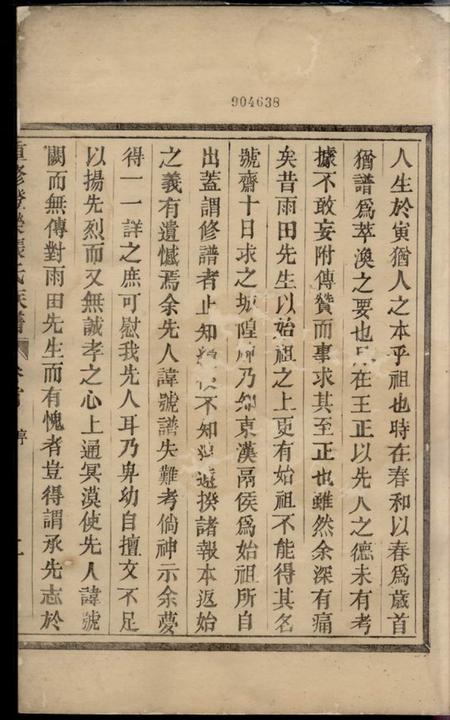 904638
人生於寅猶人之本乎祖也時在春和以春爲歲首
猶譜爲萃渙之要也 在王正以先人之德未有考
據不敢妄附傳贊而事求其至正也雖然余深有痛
矣昔雨田先生以始祖之上更有始祖不能得其名
號齋十日求之城隍 乃 東漢鬲侯爲始祖所自
出蓋謂修譜者止知 不知 遠揆諸報本返始
之義有遺憾焉余先人諱號譜失難考倘神示余夢
得一一詳之庶可慰我先人耳乃卑幼自擅文不足
以揚先烈而又無誠孝之心上通冥漠使先人諱號
闕而無傳對雨田先生而有愧者豈得謂承先志於
重修 張氏族譜